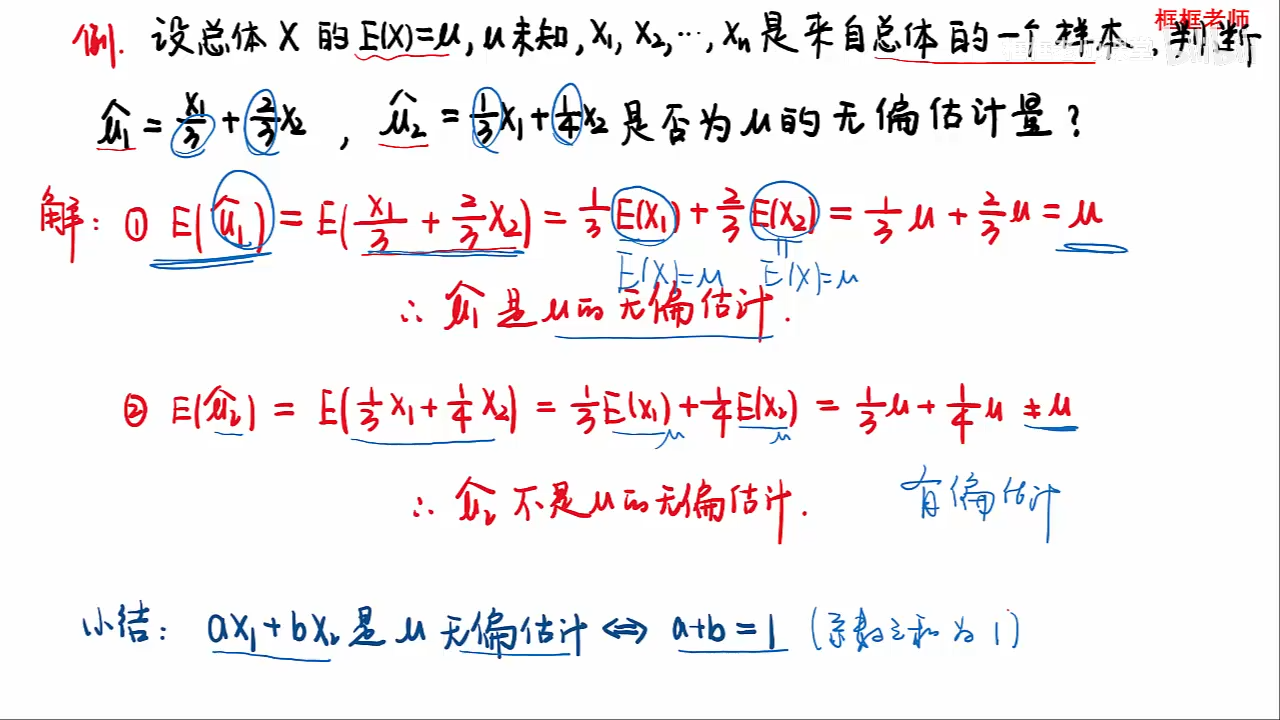 框框老师
例. 设总体 X 的 E(X)=μ, μ未知, X₁, X₂, ⋯, Xₙ 是来自总体的一个样本, 判断
μ̂₁ = X₁/3 + 2/3 X₂ , μ̂₂ = 1/3 X₁ + 1/4 X₂ 是否为 μ 的无偏估计量?
解: ① E(μ̂₁) = E(X₁/3 + 2/3 X₂) = 1/3 E(X₁) + 2/3 E(X₂) = 1/3 μ + 2/3 μ = μ
E(X)=μ E(X)=μ
∴ μ̂₁ 是 μ 的无偏估计.
② E(μ̂₂) = E(1/3 X₁ + 1/4 X₂) = 1/3 E(X₁) + 1/4 E(X₂) = 1/3 μ + 1/4 μ ≠ μ
μ μ
∴ μ̂₂ 不是 μ 的无偏估计. 有偏估计
小结: aX₁ + bX₂ 是 μ 无偏估计 ⇔ a+b=1 (系数之和为 1)